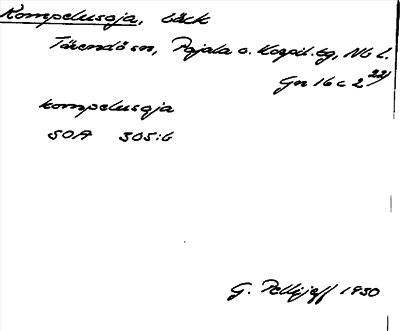 Kompelusoja, bäck
Tärendö sn, Pajala o. Korpil. tg, Nb l.
Gn 16 c 2 22)
kompelusoja
SOA 305:6
G. Pellijeff 1930